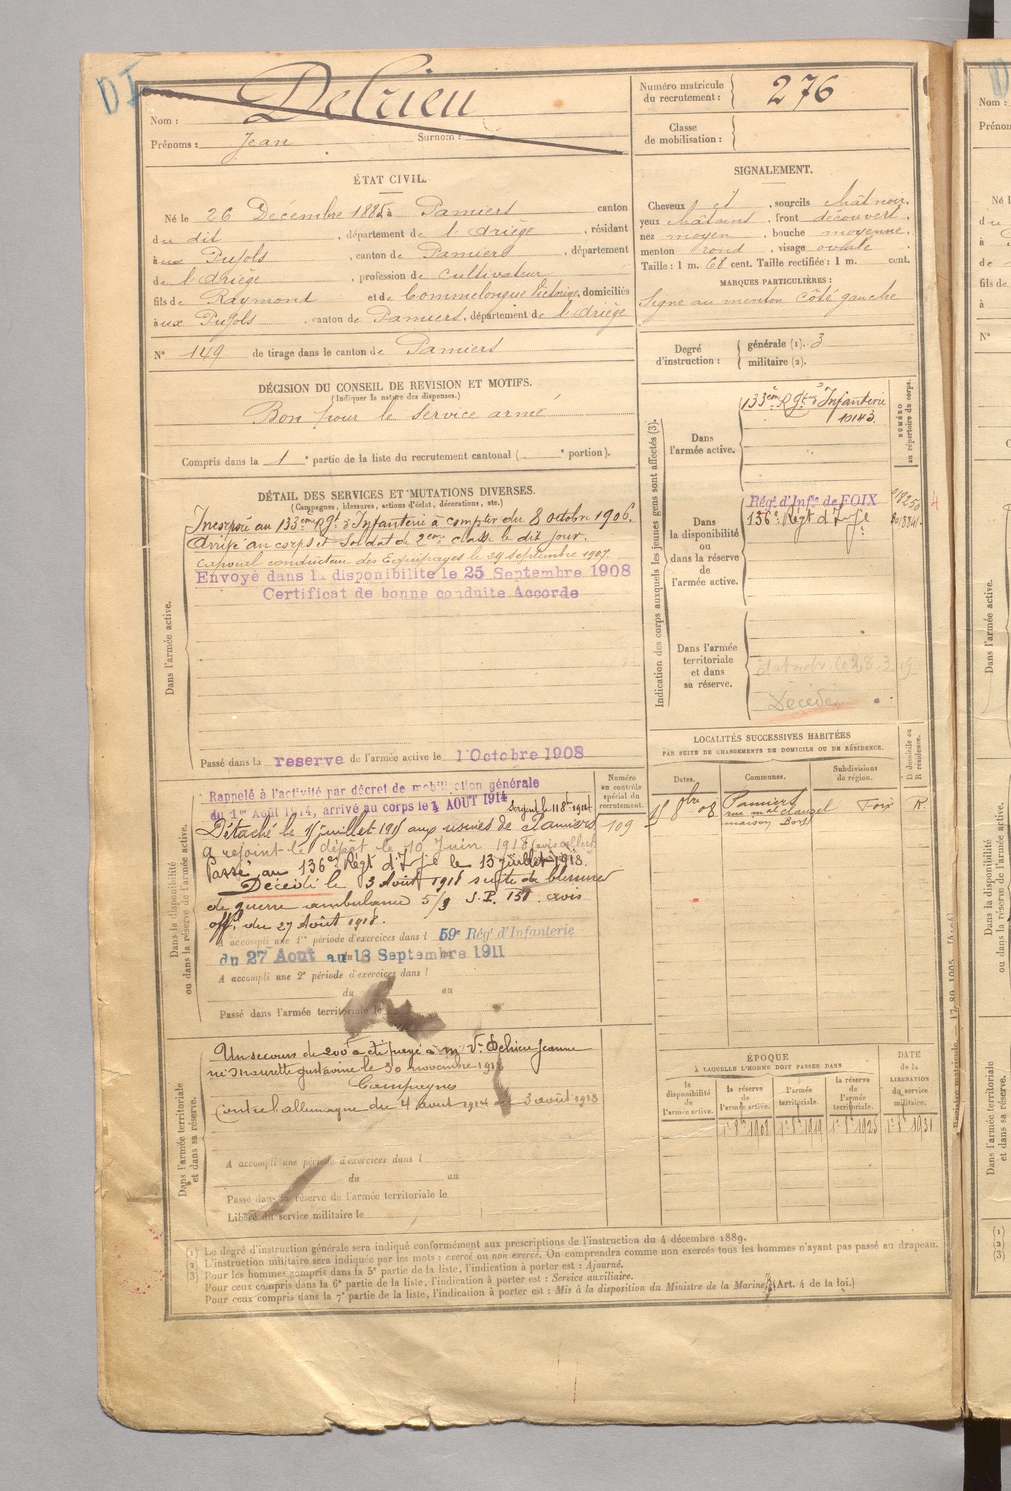 DI
Nom : Delrieu
Prénoms : Jean Surnom :
Numéro matricule du recrutement : 276
Classe de mobilisation :
ÉTAT CIVIL.
Né le 26 Décembre 1885 à Pamiers canton
du dit , département de l'Ariège , résidant
à aux Pujols , canton de Pamiers , département
de l'Ariège , profession de Cultivateur
fils de Raymond et de Commelongue Victorine, domiciliés
à aux Pujols canton de Pamiers, département de l'Ariège
N° 149 de tirage dans le canton de Pamiers
SIGNALEMENT.
Cheveux et , sourcils chât noir,
yeux châtains , front découvert,
nez moyen , bouche moyenne,
menton rond , visage ovale .
Taille : 1 m. 68 cent. Taille rectifiée : 1 m. cent.
MARQUES PARTICULIÈRES :
signe au menton côté gauche
Degré d'instruction : générale (1). 3
militaire (2).
DÉCISION DU CONSEIL DE REVISION ET MOTIFS.
(Indiquer la nature des dispenses.)
Bon pour le service armé
Compris dans la 1e partie de la liste du recrutement cantonal ( e portion).
DÉTAIL DES SERVICES ET MUTATIONS DIVERSES.
(Campagnes, blessures, actions d'éclat, décorations, etc.)
Dans l'armée active.
Incorporé au 133eme Rgt d'Infanterie à compter du 8 octobre 1906.
Arrivé au corps et Soldat de 2eme classe le dit jour.
Caporal conducteur des Equipages le 29 septembre 1907.
Envoyé dans la disponibilité le 25 Septembre 1908
Certificat de bonne conduite Accordé
Passé dans la reserve de l'armée active le 1 Octobre 1908
Indication des corps auxquels les jeunes gens sont affectés (3).
NUMÉRO au répertoire du corps.
Dans l'armée active.
133em Rgt d'Infanterie
10143.
Dans la disponibilité ou dans la réserve de l'armée active.
Régt d'Infie de FOIX
136e Régt d'Infie
4
Dans l'armée territoriale et dans sa réserve.
Décédé
LOCALITÉS SUCCESSIVES HABITÉES
PAR SUITE DE CHANGEMENTS DE DOMICILE OU DE RÉSIDENCE.
Dates. Communes. Subdivisions de région. D domicile ou R résidence.
15 8bre 08 Pamiers Foix R
Dans la disponibilité ou dans la réserve de l'armée active.
Numéro au contrôle spécial du recrutement.
109
Rappelé à l'activité par décret de mobilisation générale
du 1er Août 1914, arrivé au corps le 4 AOUT 1914 Sergent le 11 8bre 1914
Détaché le 15 juillet 1915 aux usines de Pamiers
a rejoint le dépôt le 10 Juin 1918
Passé au 136e Régt d'Infie le 13 juillet 1918.
Décédé le 3 Août 1918 suite de blessures
de guerre ambulance 5/9 S.P. 151 avis
offl du 27 Août 1918.
A accompli une 1re période d'exercices dans l 59e Régt d'Infanterie
du 27 Aout au 13 Septembre 1911
A accompli une 2e période d'exercices dans l
du au
Passé dans l'armée territoriale le
Dans l'armée territoriale et dans sa réserve.
Un secours de 200f a été payé à Mme Vve Delrieu Jeanne
née gustavine le 30 novembre 1918
Campagnes
Contre l'allemagne du 4 août 1914 au 3 août 1918
A accompli une période d'exercices dans l
du au
Passé dans la réserve de l'armée territoriale le
Libéré du service militaire le
ÉPOQUE
À LAQUELLE L'HOMME DOIT PASSER DANS
DATE de la LIBÉRATION du service militaire.
la disponibilité de l'armée active. la réserve de l'armée active. l'armée territoriale. la réserve de l'armée territoriale.
1r 8bre 1908 1r 8bre 1919 1r 8bre 1925 1r 8bre 1931
(1) Le degré d'instruction générale sera indiqué conformément aux prescriptions de l'instruction du 4 décembre 1889.
(2) L'instruction militaire sera indiquée par les mots : exercé ou non exercé. On comprendra comme non exercés tous les hommes n'ayant pas passé au drapeau.
(3) Pour les hommes compris dans la 5e partie de la liste, l'indication à porter est : Ajourné.
Pour ceux compris dans la 6e partie de la liste, l'indication à porter est : Service auxiliaire.
Pour ceux compris dans la 7e partie de la liste, l'indication à porter est : Mis à la disposition du Ministre de la Marine. (Art. 4 de la loi.)